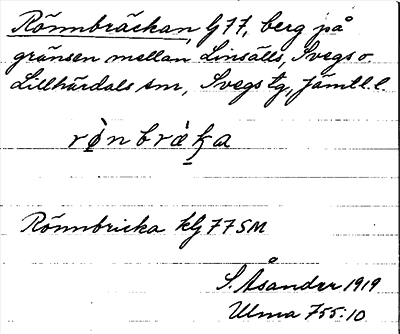 Rönnbräckan, lj 77, berg på
gränsen mellan Linsälls, Svegs o.
Lillhärdals snr, Svegs tg, Jämtl. l.
rønbræka
Rönnbricka klj 77 SM
S. Åsander 1919
Ulma 755:10